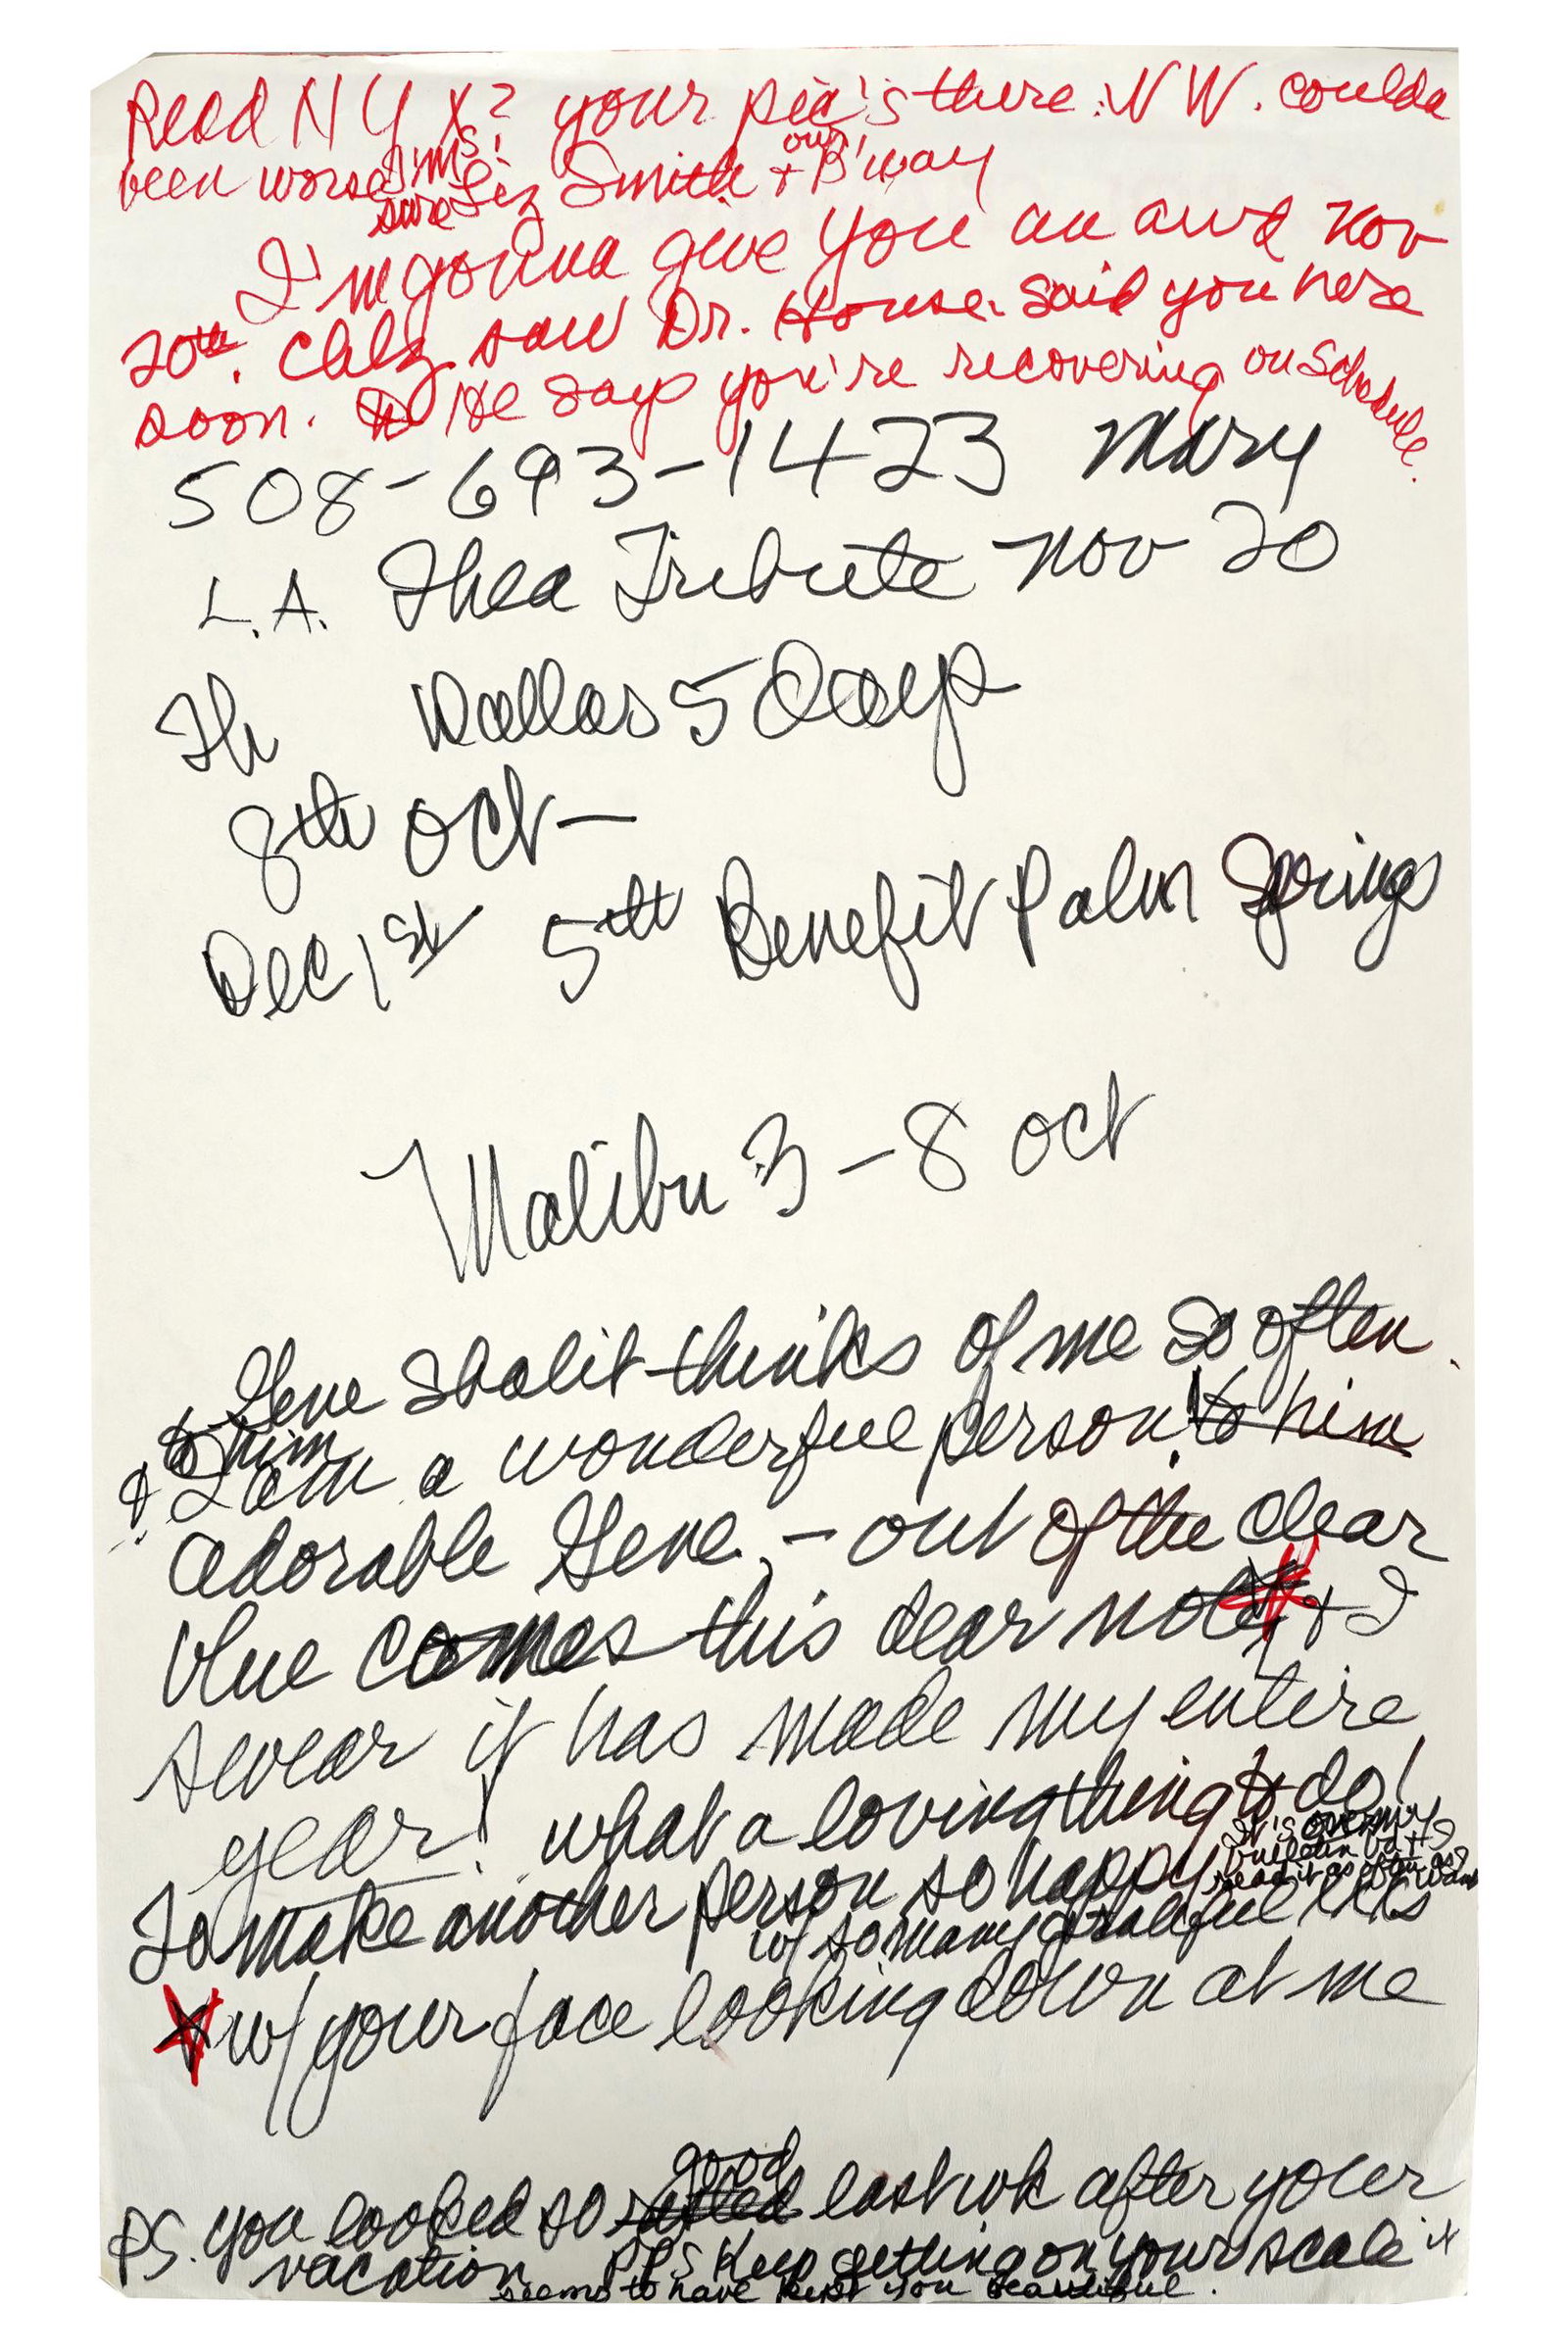 Read N Y X? your pic's there. N W. coulda
been worse I'm sure Liz Smith + our B'way
I'm gonna give you an awd Nov
20th. saw Dr. House. Said you here
soon. He says you're recovering on schedule.
508-693-1423 Mary
L.A. Thea Tribute Nov 20
Th Dallas 5 Days
8th Oct —
Dec 1st 5th Benefit Palm Springs
Malibu 3-8 Oct
Gene Shalit thinks of me so often.
& to him I am a wonderful person! to him
adorable Gene, - out of the clear
blue comes this dear note, + I
swear it has made my entire
year! what a loving thing to do!
It's over my
bulletin bd + I
read it as often as I want
To make another person so happy
w/ so many grateful
w/ your face looking down at me
PS. you looked so good last wk after your
vacation PPS Keep getting on your scale it
seems to have kept you beautiful.